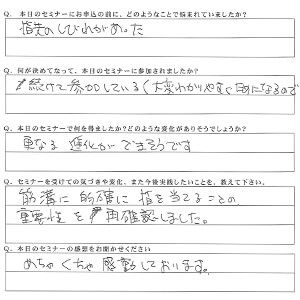 Q. 本日のセミナーにお申込の前に、どのようなことで悩まれていましたか？
指先のしびれがあった
Q. 何が決めてなって、本日のセミナーに参加されましたか？
続けて参加している（大変わかりやすく為になるので
Q. 本日のセミナーで何を得ましたか？どのような変化がありそうでしょうか？
更なる進化ができそうです
Q. セミナーを受けての気づきや変化、また今後実践したいことを、教えて下さい。
筋溝に的確に指を当てることの
重要性を再確認しました。
Q. 本日のセミナーの感想をお聞かせください
めちゃくちゃ感動しております。